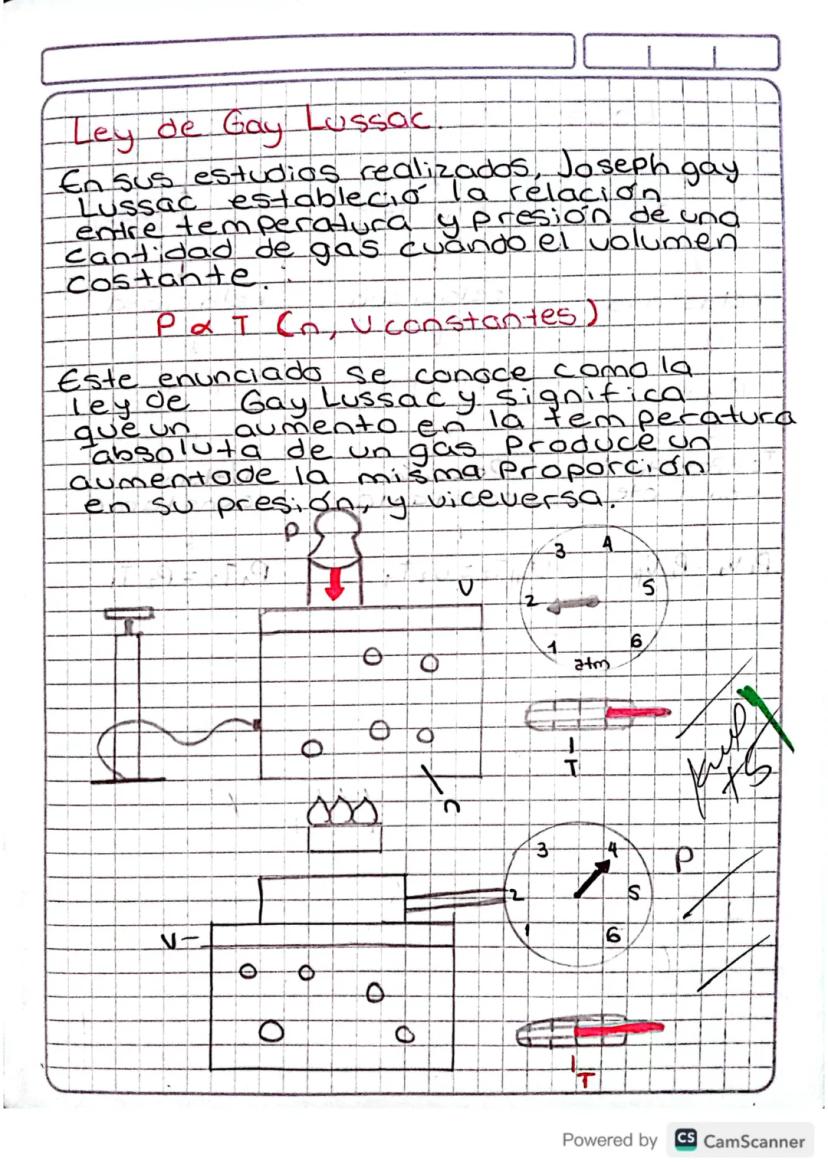 Ley de Gay Lussac.
En sus estudios realizados, Joseph gay
Lussac estableció la relación
entre temperatura y presión de una
cantidad de gas cuando el volumen
costante.
P α T (n, V constantes)
Este enunciado se conoce como la
ley de Gay Lussac y significa
que un aumento en la temperatura
absoluta de un gas produce un
aumento de la misma proporción
en su presión, y viceversa.
P
V
3 4
2 5
1 6
atm
T
n
3 4
P
2 5
V
1 6
T
Powered by CS CamScanner